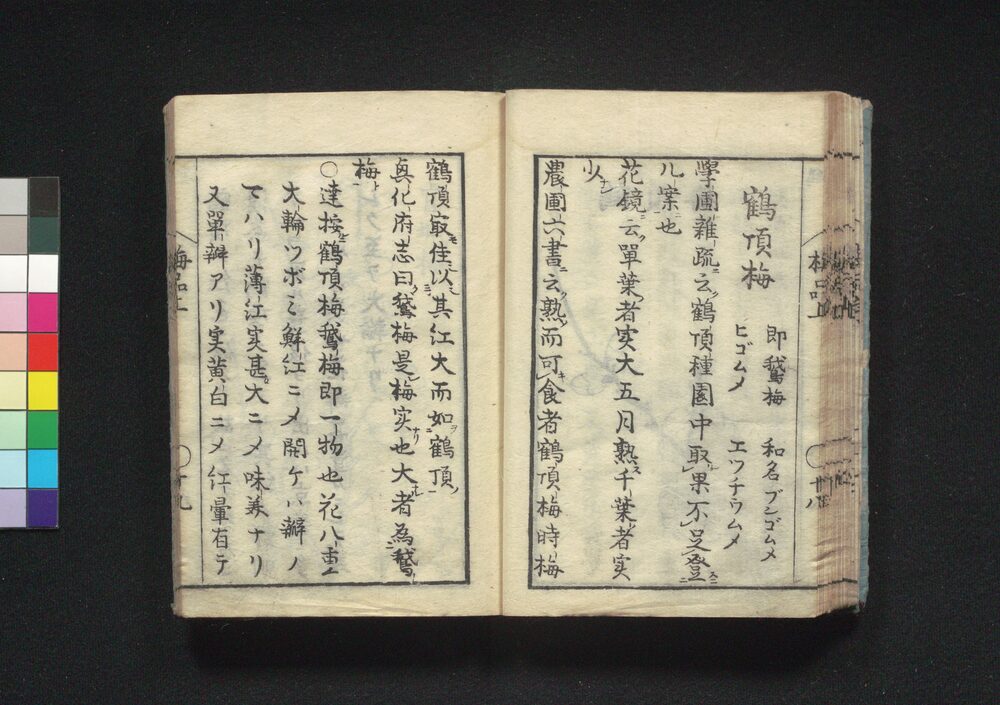 鶴頂梅
即鵞梅　和名ブンゴムメ
ヒゴムメ　エウチウムメ
學圃雜疏云鶴頂種園中取果不足登
ル案也
花鏡云單葉者实大五月熟千葉者実
少
農圃六書云熟而可食者鶴頂梅時梅
鶴頂㝡佳以其江大而如鶴頂
真化府志曰鵞梅是梅实也大者為鵞
梅
○達按鶴頂梅鵞梅即一物也花八重
大輪ツボミ鮮江ニメ開ケハ瓣ノ
てハリ薄江実甚大ニメ味美ナリ
又單瓣アリ実黄白ニメ红暈有テ
梅品上
廿八
梅品上
廿九